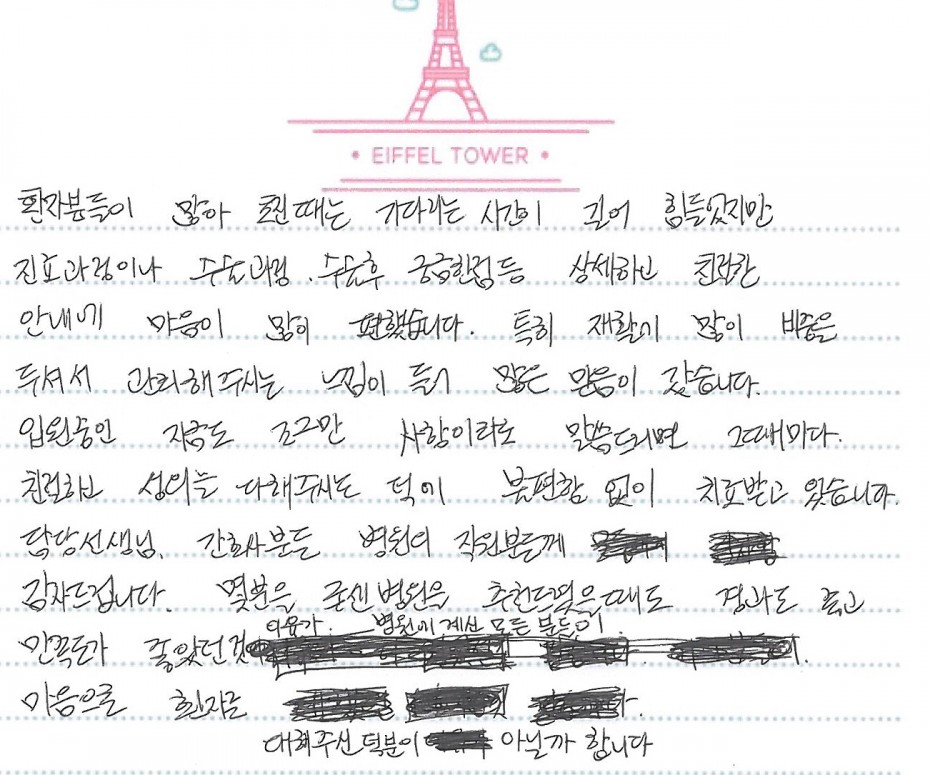 EIFFEL TOWER
환자분들이 많아 초진때는 기다리는 시간이 길어 힘들었지만
진료과정이나 수술과정. 수술후 궁금한점등 상세하고 친절한
안내에 마음이 많이 편했습니다. 특히 재활에 많이 비중을
두셔서 관리해주시는 느낌이 들어 많은 믿음이 갔습니다.
입원중인 지금도 조그만 사항이라도 말씀드리면 그때마다.
친절하고 성의를 다해주시는 덕에 불편함 없이 치료받고 있습니다.
담당선생님, 간호사분들 병원의 직원분들께
감사드립니다. 몇분을 병원을 추천드렸을때도 경과도 좋고
만족도가 좋았던것
이유가. 병원에 계신 모든 분들이
마음으로 환자를
대해주신 덕분이 아닐까 합니다